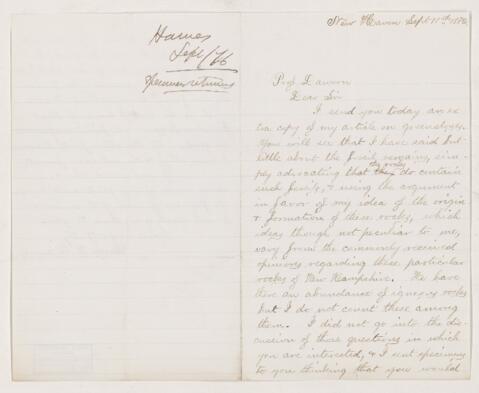 Hawes
Sept/76
Specimens returned
New Haven Sept 11th, 1876.
Prof. Dawson
Dear Sir
I send you today an ex-
tra copy of my article on greenstones.
You will see that I have said but
little about the fossil remains, sim-
ply advocating that the rocks they do contain
such fossils, & using the argument
in favor of my idea of the origin
& formation of these rocks, which
ideas though not peculiar to me,
vary from the commonly received
opinions regarding these particular
rocks of New Hampshire. We have
there an abundance of igneous rocks
but I do not count these among
them. I did not go into the dis-
cussion of those questions in which
you are interested, & I sent specimens
to you thinking that you would